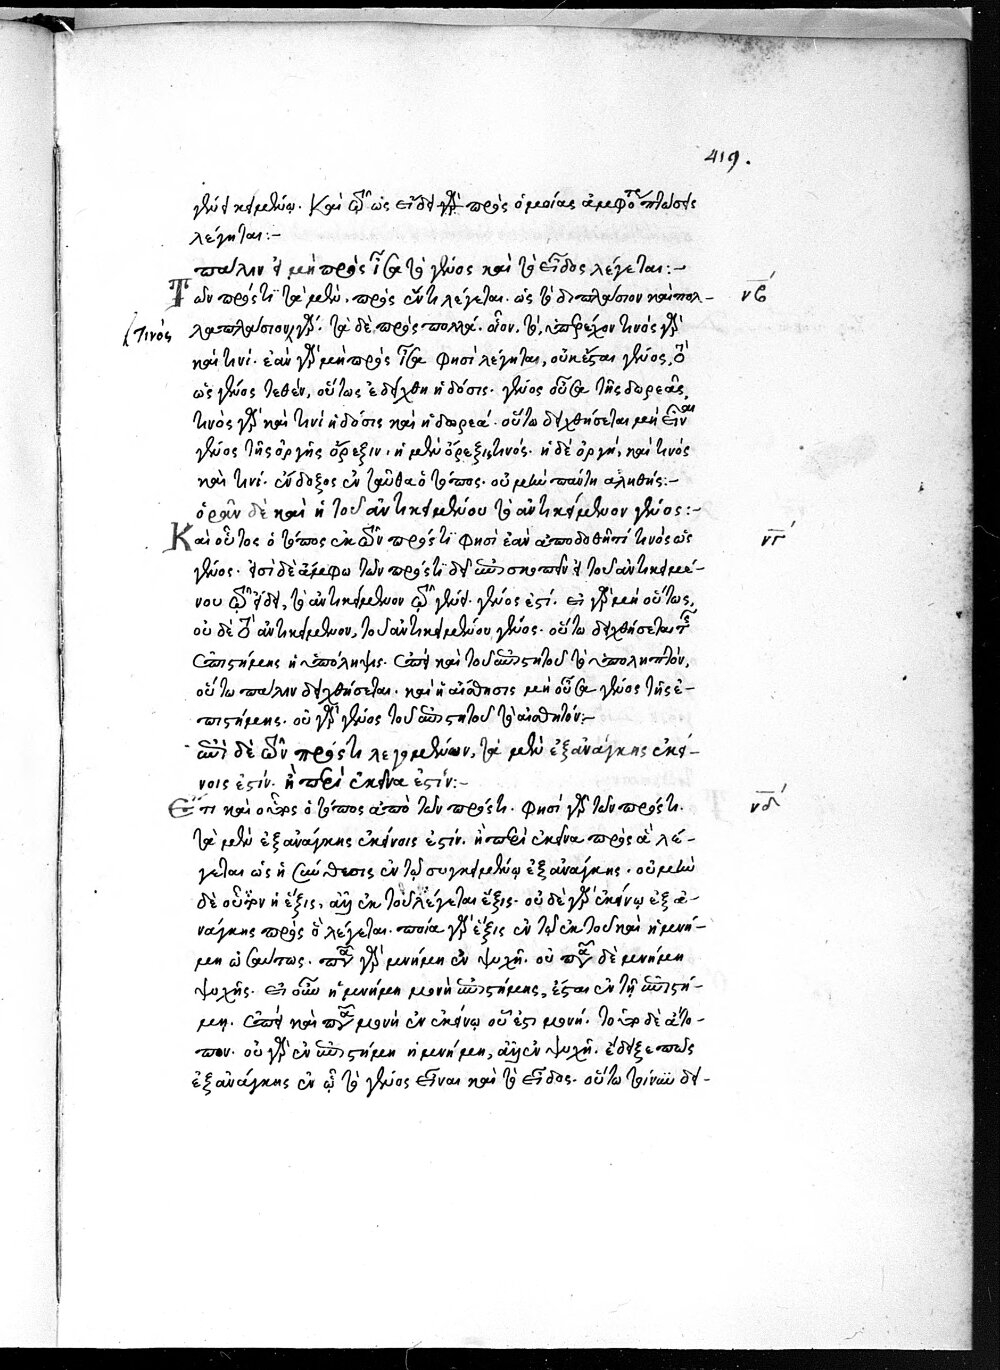 419.
λέγηται:-
πάλιν εἰ μὴ πρὸς ἴσα τὸ γένος καὶ τὸ εἶδος λέγεται:-
Τῶν πρός τι τὰ μὲν, πρὸς ἕν τι λέγεται. ὡς τὸ διπλάσιον καὶ πολ- νβ´
τινός
λαπλάσιον. τὰ δὲ πρὸς πολλά. οἷον, τὸ ὑπερέχον τινὸς γὰρ
καὶ τινί. ἐὰν γὰρ μὴ πρὸς ἴσα φησὶ λέγηται, οὐκ ἔσται γένος, ὃ
ὡς γένος τεθέν, οὕτως ἐδείχθη ἡ δόσις. γένος οὖσα τῆς δωρεᾶς,
τινὸς γὰρ καὶ τινὶ ἡ δόσις καὶ ἡ δωρεά. οὕτω δειχθήσεται μὴ εἶναι
γένος τῆς ὀργῆς ὄρεξιν. ἡ μὲν ὄρεξις τινός. ἡ δὲ ὀργὴ, καὶ τινός
καὶ τινί. ἔνδοξος ἐνταῦθα ὁ τόπος. οὐ μὲν πάντη ἀληθής:-
ὁρᾶν δὲ καὶ εἰ τοῦ ἀντικειμένου τὸ ἀντικείμενον γένος:-
Καὶ οὗτος ὁ τόπος ἐκ τῶν πρός τι φησὶ ἐὰν ἀποδοθῇ τί τινὸς ὡς νγ´
γένος. εἰσὶ δὲ ἄμφω τῶν πρός τι δεῖ ἐπισκοπεῖν εἰ τοῦ ἀντικειμέ-
νου τῷ εἴδει, τὸ ἀντικείμενον τῷ γένει γένος ἐστί. εἰ γὰρ μὴ οὕτως,
οὐδὲ τὸ ἀντικείμενον, τοῦ ἀντικειμένου γένος. οὕτω δειχθήσεται τῆς
ἐπιστήμης ἡ ὑπόληψις. ἐπεὶ καὶ τοῦ ἐπιστητοῦ τὸ ὑποληπτόν,
οὕτω πάλιν δειχθήσεται. καὶ ἡ αἴσθησις μὴ οὖσα γένος τῆς ἐ-
πιστήμης. οὐ γὰρ γένος τοῦ ἐπιστητοῦ τὸ αἰσθητόν:-
ἐπεὶ δὲ τῶν πρός τι λεγομένων, τὰ μὲν ἐξ ἀνάγκης ἐκεί-
νοις ἐστίν. ἢ περὶ ἐκεῖνα ἐστίν:-
Ἔτι καὶ οὗτος ὁ τόπος ἀπὸ τῶν πρός τι. φησὶ γὰρ τῶν πρός τι. νδ´
τὰ μὲν ἐξ ἀνάγκης ἐκείνοις ἐστίν. ἢ περὶ ἐκεῖνα πρὸς ἃ λέ-
γεται ὡς ἡ σύνθεσις ἐν τῷ συγκειμένῳ ἐξ ἀνάγκης. οὐ μὲν
ἕξις, ἀλλ' ἐκ τοῦ λέγεται ἕξις. οὐδὲ γὰρ ἐκείνῳ ἐξ ἀ-
νάγκης πρὸς ὃ λέγεται. ποία γὰρ ἕξις ἐν τῷ ἐκ τοῦ καὶ ἡ μνή-
μη ὡσαύτως. πᾶσα γὰρ μνήμη ἐν ψυχῇ. οὐ πᾶσα δὲ μνήμη
ψυχῆς. εἰ οὖν ἡ μνήμη μονὴ ἐπιστήμης, ἔσται ἐν τῇ ἐπιστή-
μῃ. ἐπεὶ καὶ πᾶσα μονὴ ἐν ἐκείνῳ οὗ ἐστι μονή. τοῦτο δὲ ἄτο-
πον. οὐ γὰρ ἐν ἐπιστήμῃ ἡ μνήμη, ἀλλ' ἐν ψυχῇ. ἔδειξε πῶς
ἐξ ἀνάγκης ἐν ᾧ τὸ γένος εἶναι καὶ τὸ εἶδος. οὕτω